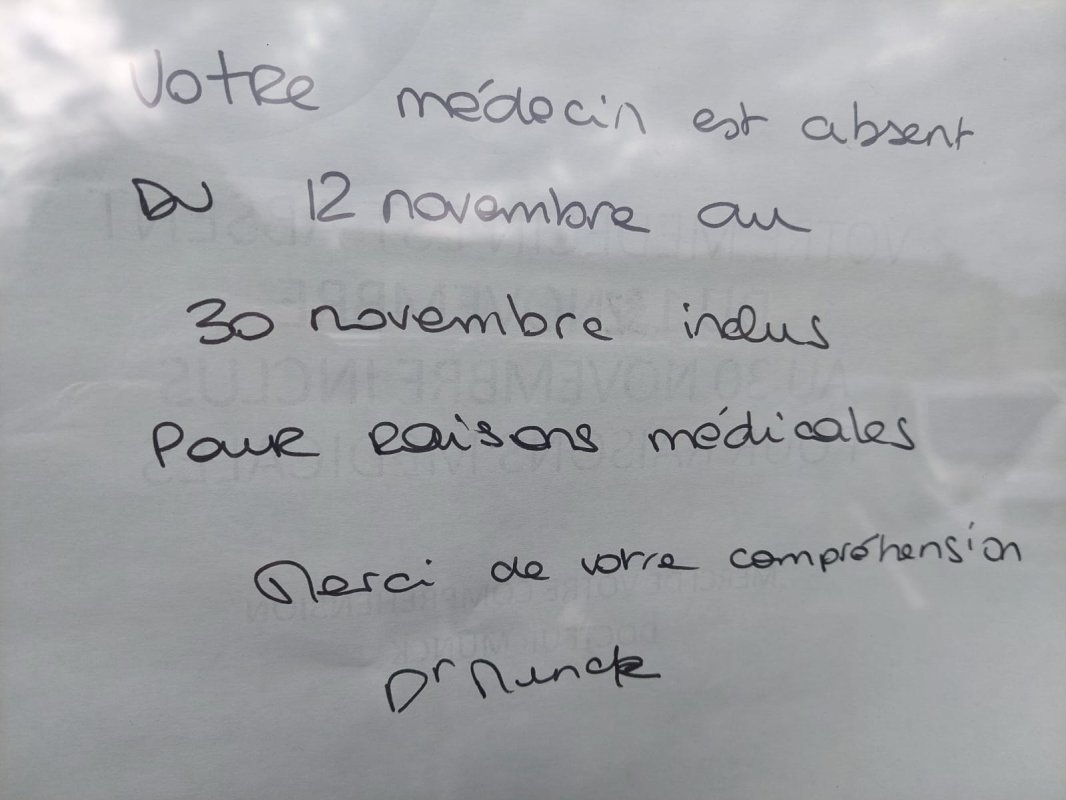 Votre médecin est absent
Du 12 novembre au
30 novembre inclus
Pour raisons médicales
Merci de votre compréhension
Dr Munck